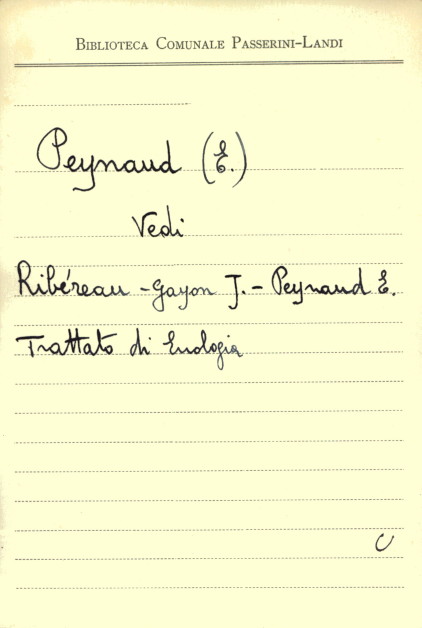 Biblioteca Comunale Passerini-Landi
Peynaud (E.)
Vedi
Ribéreau-Gayon J. - Peynaud E.
Trattato di Enologia
C